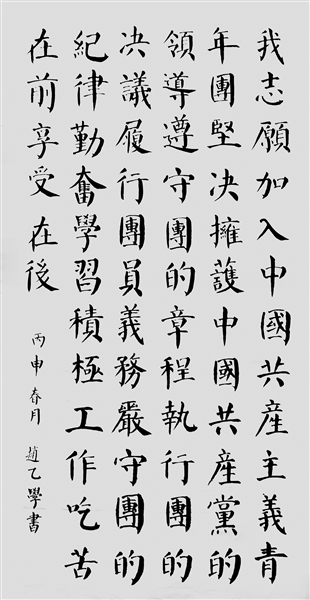 我志願加入中國共産主義青
年團堅决擁護中國共産黨的
領導遵守團的章程執行團的
决議履行團員義務嚴守團的
紀律勤奮學習積極工作吃苦
在前享受在後
丙申春月 趙乙學書